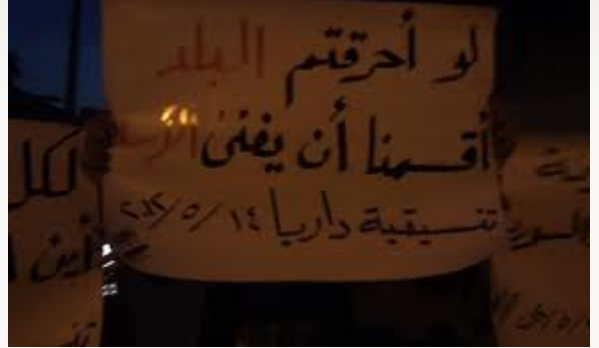 لو أحرقتم البلد
أقسمنا أن يفنى الأسد
تنسيقية داريا ١٤/٥/٢٠١٢
لكل
أين